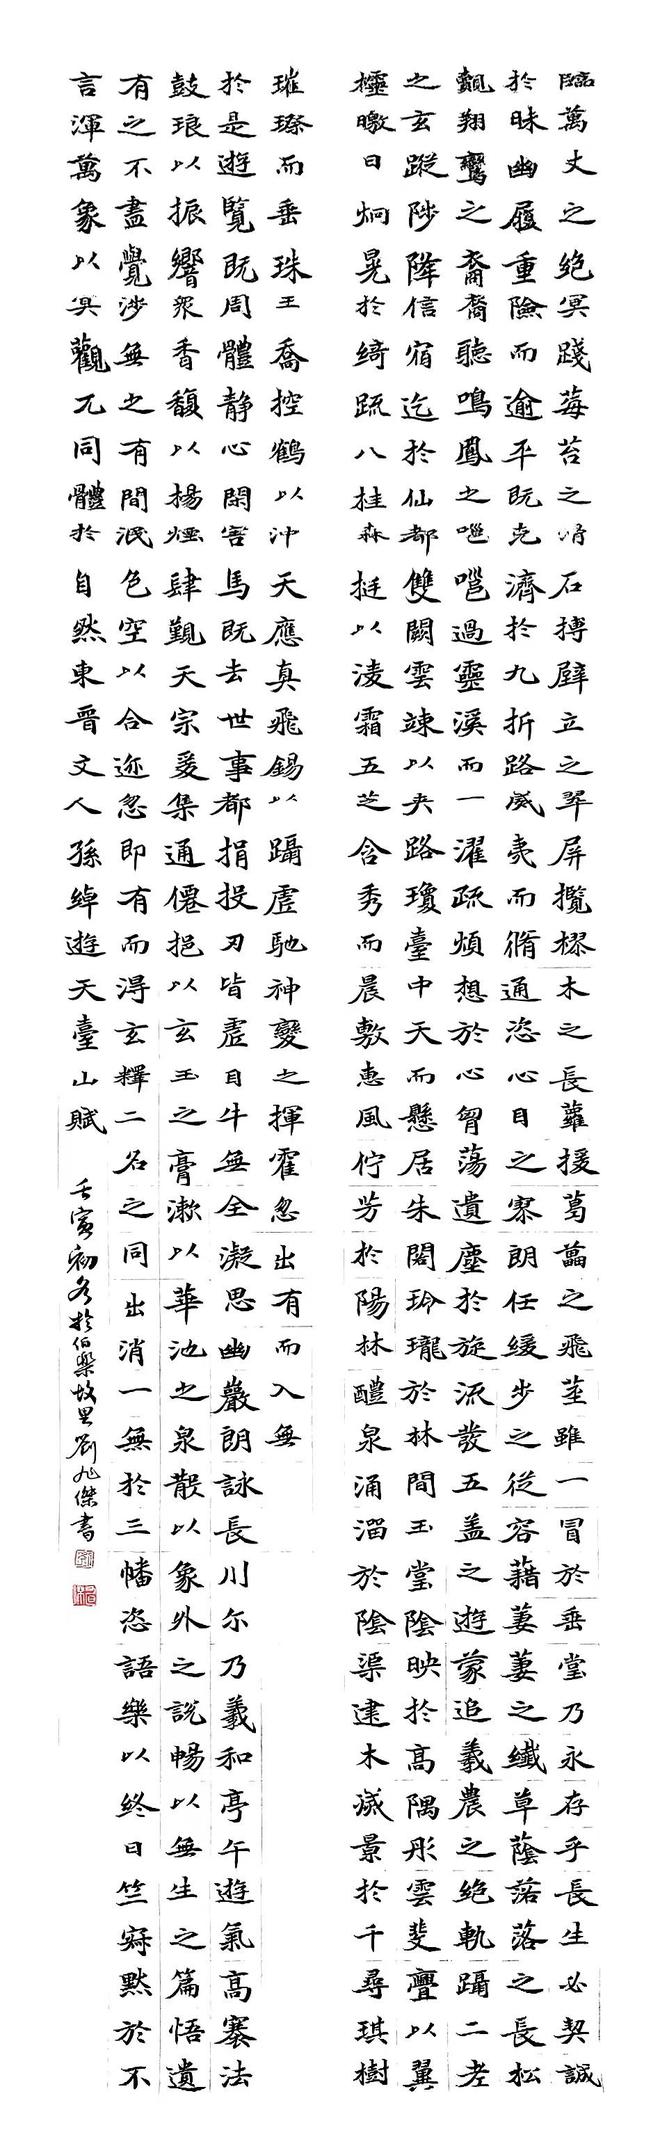 臨萬丈之絶冥踐莓苔之滑石搏壁立之翠屏攬樛木之長蘿援葛藟之飛莖雖一冒於垂堂乃永存乎長生必契誠
於昧幽履重險而逾平既克濟於九折路威夷而脩通恣心目之寥朗任緩步之從容藉萋萋之纖草蔭落落之長松
覿翔鸞之裔裔聽鳴鳳之嗈嗈過靈溪而一濯疏煩想於心胷蕩遺塵於旋流發五盖之遊蒙追羲農之絶軌躡二老
之玄蹤陟降信宿迄於仙都雙闕雲竦以夾路瓊臺中天而懸居朱閣玲瓏於林間玉堂陰映於高隅彤雲斐亹以翼
櫺曒日炯晃於綺疏八桂森挺以淩霜五芝含秀而晨敷惠風佇芳於陽林醴泉涌溜於陰渠建木滅景於千尋琪樹
璀璨而垂珠王喬控鶴以沖天應真飛錫以躡虛馳神變之揮霍忽出有而入無
於是遊覽既周體静心閑害馬既去世事都捐投刃皆虛目牛無全凝思幽巖朗詠長川尔乃羲和亭午遊氣高褰法
鼓琅以振響衆香馥以揚煙肆覲天宗爰集通僊挹以玄玉之膏漱以華池之泉散以象外之說暢以無生之篇悟遺
有之不盡覺涉無之有間泯色空以合迹忽即有而得玄釋二名之同出消一無於三幡恣語樂以終日等寂默於不
言渾萬象以冥觀兀同體於自然東晋文人孫綽遊天臺山賦
壬寅初冬於伯樂故里劉旭傑書